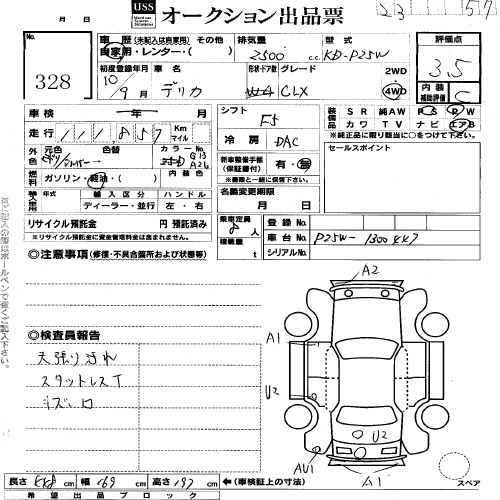 USS オークション出品票
月 日
23 157
328
車歴 (未記入は自家用) その他
自家用・レンター・( )
排気量
2500 c.c.
型式
KD-P25W
評価点
3.5
初度登録年月
10年 9月
車名
デリカ
形状・ドア数 グレード
4 CLX
2WD
4WD
内装補助評価
C
車検 年 月
シフト
F5
装備品
S R 純AW P S P W
カワ T V ナビ エアB
※純正品に限り該当に○をつけて下さい。
走行 111,857 Km マイル
冷房
DAC
セールスポイント
外色
色替
カラー No.
G13
A26
新車整備手帳
(保証書付)
有・無
燃料
ガソリン・軽油・( )
内装色
名義変更期限
月 日
輸入車用
輸入区分
ハンドル
ディーラー・並行
左・右
リサイクル預託金 円 預託済み
※リサイクル預託金に資金管理料金は含まれません。
乗車定員 8人
積載量 t
登録 No.
車台 No. P25W-1300447
シリアルNo.
◎注意事項 (修復・不具合箇所および状態等)
◎検査員報告
天張り汚れ
スタットレスT
キズ凹
A2
A1
U2
U2
AU1
A1
長さ cm 幅 169 cm 高さ 197 cm ←(車検証上の寸法)
スペア
希望出品ブロック
太ワク内をボールペンで強くご記入下さい。